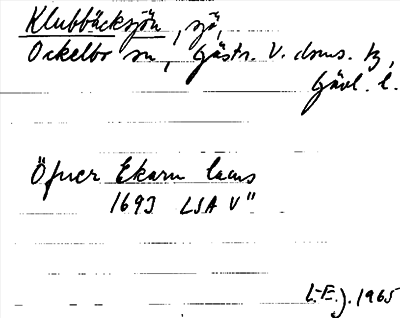 Klubbäcksjön, sjö,
Ockelbo sn, Gästr. V. doms. tg,
Gävl. l.
Öfuer Ekarn lacus
1693 LSA V"
L-E.J. 1965